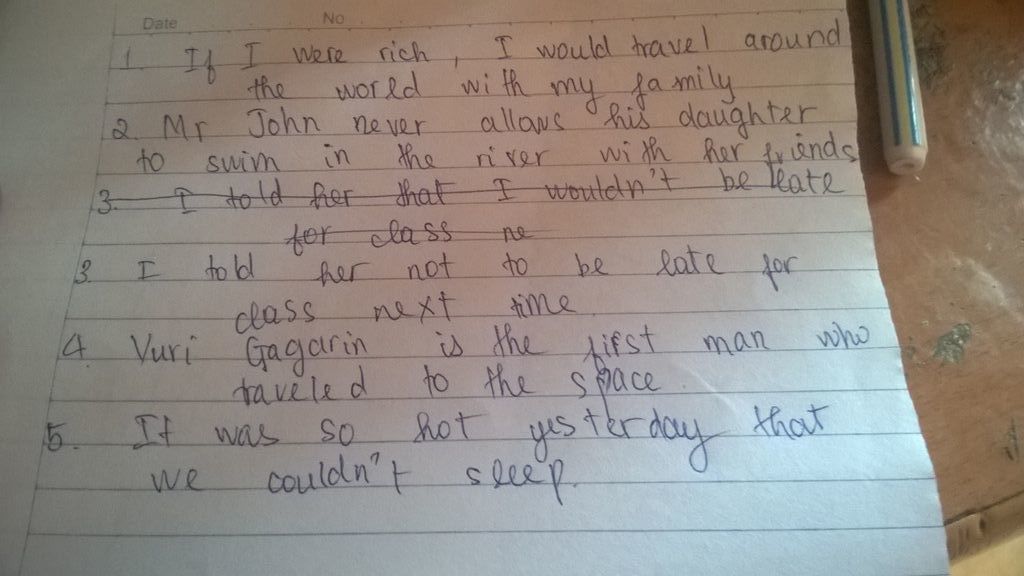 Date No
1. If I were rich, I would travel around
the world with my family
2. Mr John never allows his daughter
to swim in the river with her friends
3. I told her that I wouldn't be late
for class ne
3. I told her not to be late for
class next time
4. Yuri Gagarin is the first man who
traveled to the space.
5. It was so hot yesterday that
we couldn't sleep.